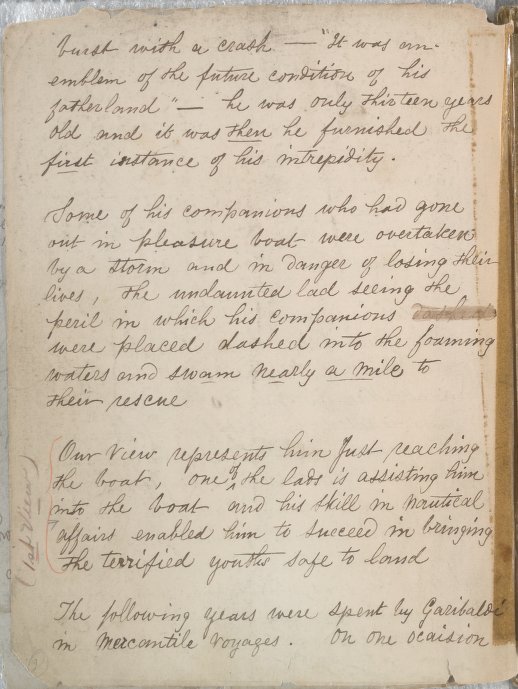 burst with a crash — "It was an
emblem of the future condition of his
fatherland" — he was only thirteen years
old and it was then he furnished the
first instance of his intrepidity.
Some of his companions who had gone
out in pleasure boat were overtaken
by a storm and in danger of losing their
lives, the undaunted lad seeing the
peril in which his companions
were placed dashed into the foaming
waters and swam nearly a mile to
their rescue
Our View represents him Just reaching
the boat, one of the lads is assisting him
into the boat and his skill in nautical
affairs enabled him to succeed in bringing
the terrified youths safe to land
(1st View)
The following years were spent by Garibaldi
in Mercantile Voyages. On one ocaision